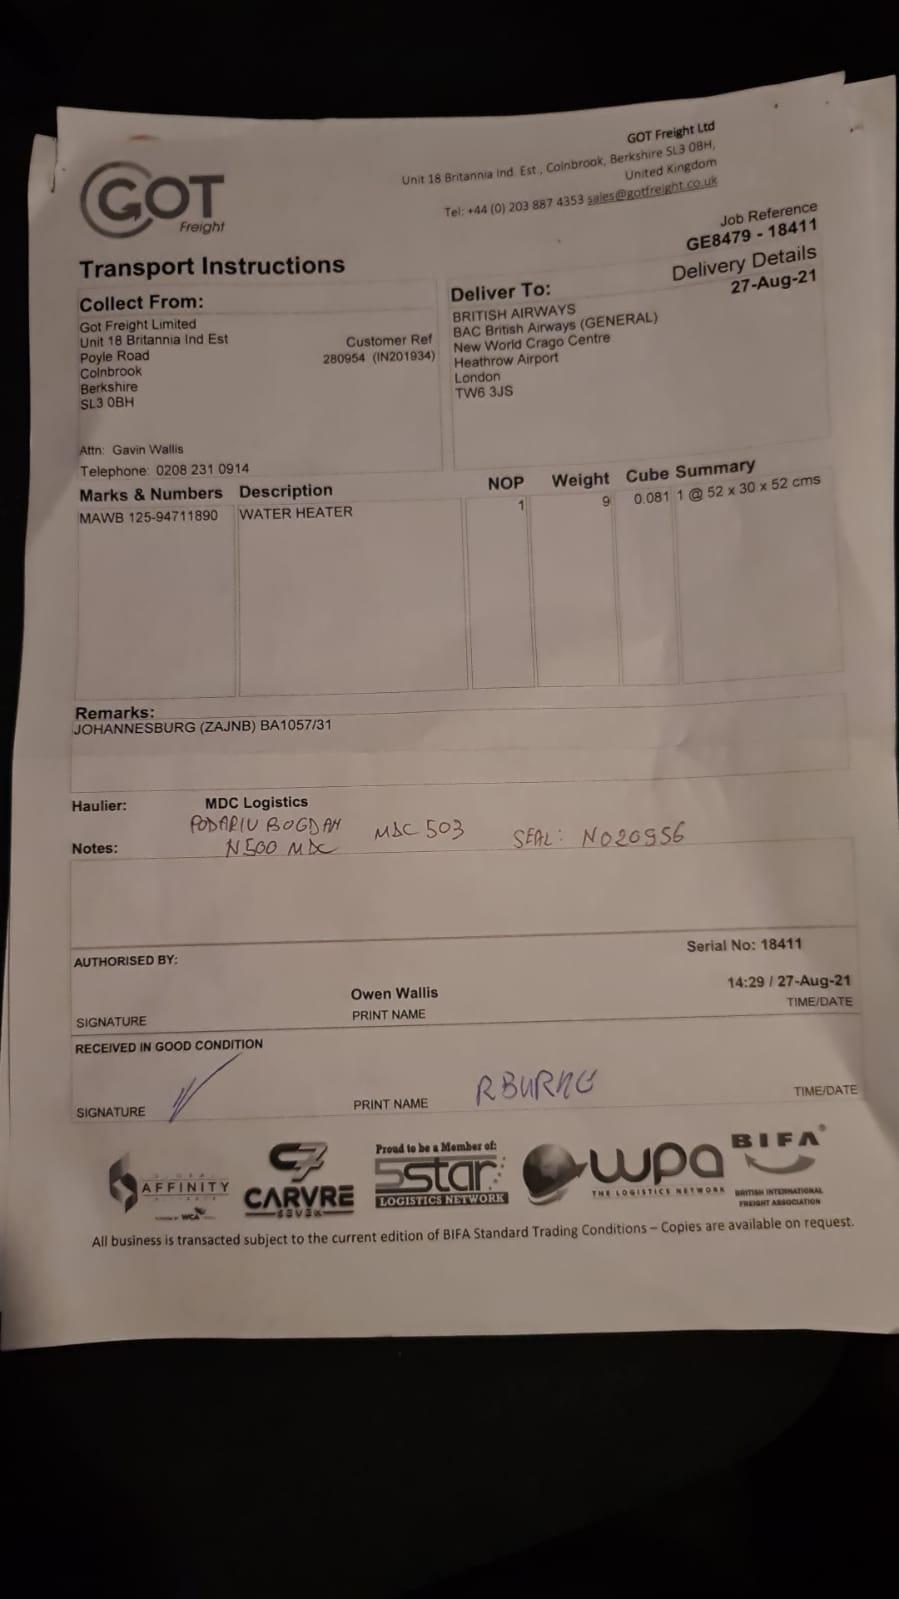 GOT
Freight
GOT Freight Ltd
Unit 18 Britannia Ind. Est., Colnbrook, Berkshire SL3 0BH,
United Kingdom
Tel: +44 (0) 203 887 4353 sales@gotfreight.co.uk
Job Reference
GE8479 - 18411
Transport Instructions
Delivery Details
27-Aug-21
Collect From:
Got Freight Limited
Unit 18 Britannia Ind Est
Poyle Road
Colnbrook
Berkshire
SL3 0BH
Customer Ref
280954 (IN201934)
Attn: Gavin Wallis
Telephone: 0208 231 0914
Deliver To:
BRITISH AIRWAYS
BAC British Airways (GENERAL)
New World Crago Centre
Heathrow Airport
London
TW6 3JS
Marks & Numbers Description NOP Weight Cube Summary
MAWB 125-94711890 WATER HEATER 1 9 0.081 1 @ 52 x 30 x 52 cms
Remarks:
JOHANNESBURG (ZAJNB) BA1057/31
Haulier: MDC Logistics
PODARIU BOGDAN MDC 503 SEAL: N020956
Notes: N500 MDC
AUTHORISED BY: Serial No: 18411
Owen Wallis 14:29 / 27-Aug-21
SIGNATURE PRINT NAME TIME/DATE
RECEIVED IN GOOD CONDITION
SIGNATURE PRINT NAME R BURKE TIME/DATE
AFFINITY
WCA
C7
CARVRE
SEVEN
Proud to be a Member of:
5star
LOGISTICS NETWORK
wpa
THE LOGISTICS NETWORK
BIFA
BRITISH INTERNATIONAL
FREIGHT ASSOCIATION
All business is transacted subject to the current edition of BIFA Standard Trading Conditions – Copies are available on request.